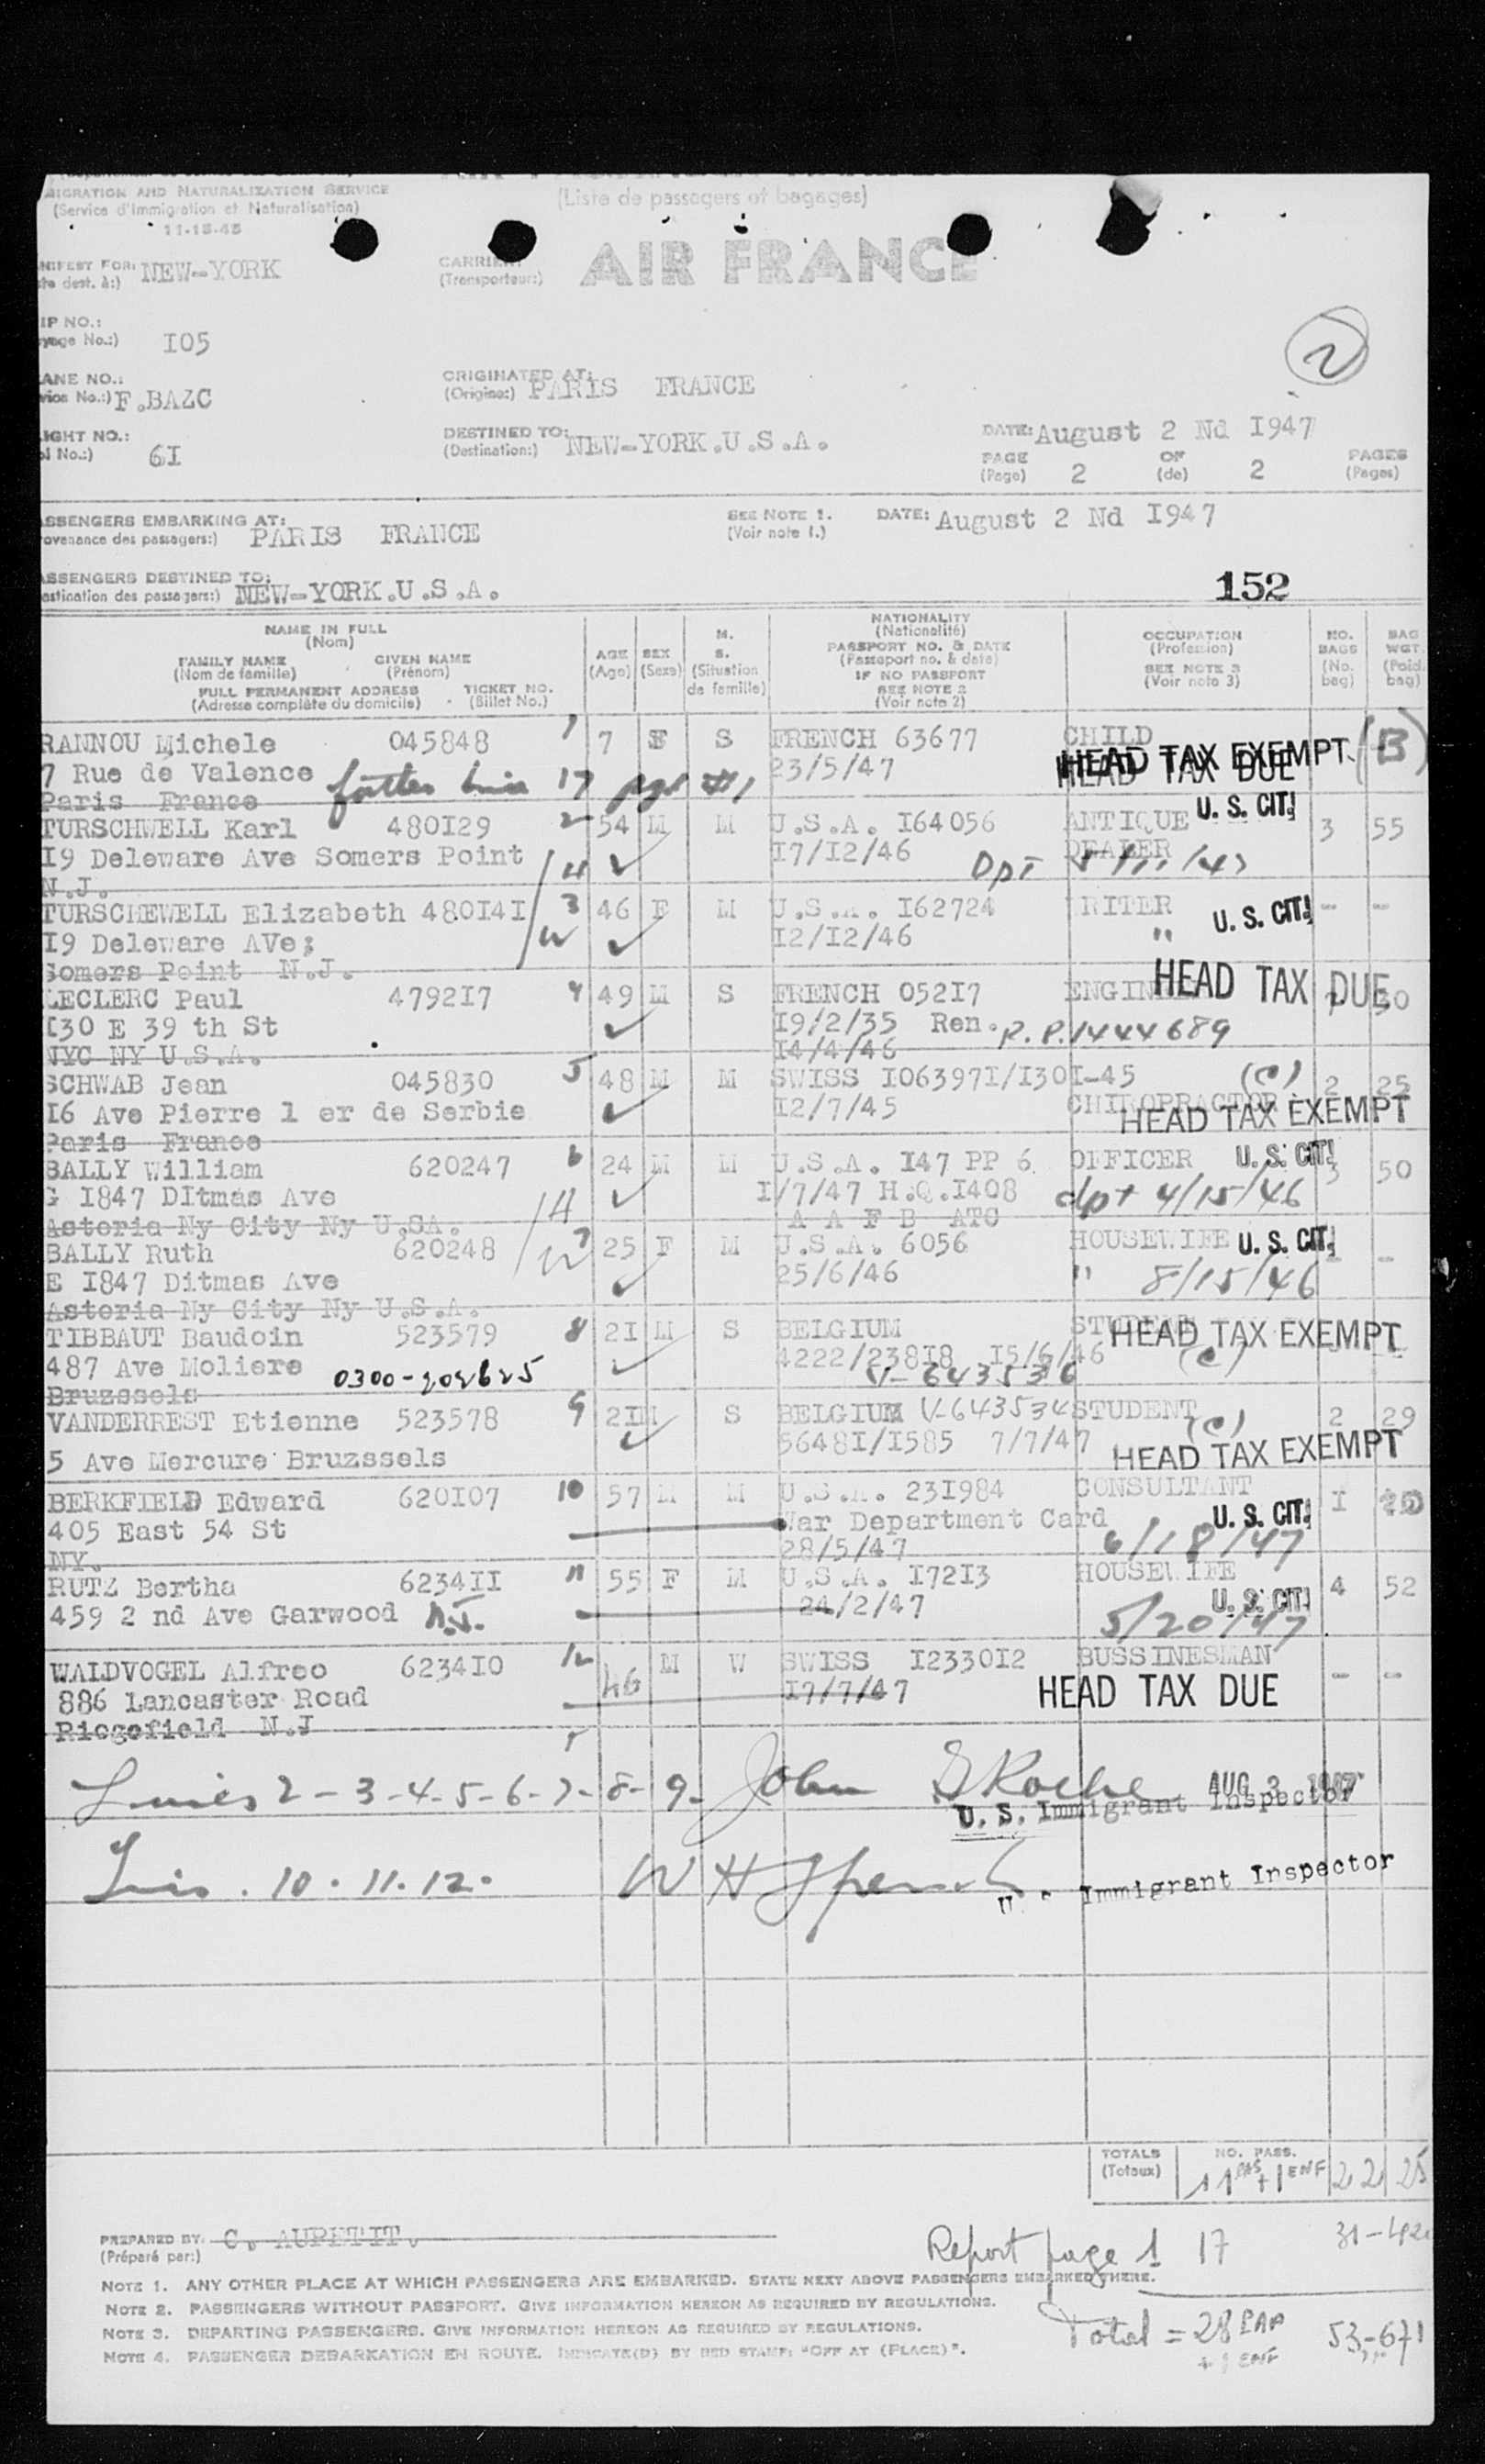 MIGRATION AND NATURALIZATION SERVICE
(Service d'Immigration et Naturalisation)
11-15-45
(Liste de passagers et bagages)
NIFEST FOR: NEW-YORK
dest. à:)
CARRIER:
(Transporteur:)
AIR FRANCE
IP NO.:
yage No.:) I05
2
ANE NO.:
vion No.:) F.BAZC
ORIGINATED AT:
(Origine:) PARIS FRANCE
IGHT NO.:
ol No.:) 6I
DESTINED TO:
(Destination:) NEW-YORK.U.S.A.
DATE: August 2 Nd I947
PAGE 2 OF 2 PAGES
(Page) (de) (Pages)
ASSENGERS EMBARKING AT:
rovenance des passagers:) PARIS FRANCE
SEE NOTE 1.
(Voir note 1.)
DATE: August 2 Nd I947
ASSENGERS DESTINED TO:
estination des passagers:) NEW-YORK.U.S.A.
152
NAME IN FULL
(Nom)
FAMILY NAME GIVEN NAME
(Nom de famille) (Prénom)
FULL PERMANENT ADDRESS TICKET NO.
(Adresse complète du domicile) (Billet No.)
AGE
(Age)
SEX
(Sexe)
M.
S.
(Situation
de famille)
NATIONALITY
(Nationalité)
PASSPORT NO. & DATE
(Passeport no. & date)
IF NO PASSPORT
SEE NOTE 2
(Voir note 2)
OCCUPATION
(Profession)
SEE NOTE 3
(Voir note 3)
NO.
BAGS
(No.
bag)
BAG
WGT.
(Poid.
bag)
RANNOU Michele 045848 1 7 F S FRENCH 63677 CHILD
7 Rue de Valence 23/5/47 HEAD TAX EXEMPT (B)
HEAD TAX DUE
Paris France father line 17 page #1
TURSCHWELL Karl 480I29 2 54 M M U.S.A. I64056 ANTIQUE U.S. CIT. 3 55
I9 Deleware Ave Somers Point I7/I2/46 DEALER
N.J. H Dpt
TURSCHEWELL Elizabeth 480I4I 3 46 F M U.S.A. I62724 WRITER U.S. CIT. - -
I9 Deleware AVe; W I2/I2/46 "
Somers Point N.J.
LECLERC Paul 4792I7 4 49 M S FRENCH 052I7 HEAD TAX DUE
I30 E 39 th St I9/2/35 Ren. R.P.1444689
NYC NY U.S.A. I4/4/46
SCHWAB Jean 045830 5 48 M M SWISS I06397I/I30I-45 (C) 2 25
I6 Ave Pierre 1 er de Serbie I2/7/45 CHIROPRACTOR
HEAD TAX EXEMPT
Paris France
BALLY William 620247 6 24 M M U.S.A. I47 PP 6. OFFICER U.S. CIT. 3 50
G I847 DItmas Ave I/7/47 H.Q.I408 dpt 4/15/46
Asteria Ny City Ny U.SA. H A A F B ATC
BALLY Ruth 620248 7 25 F M U.S.A. 6056 HOUSEWIFE U.S. CIT. - -
E I847 Ditmas Ave W 25/6/46 " 8/15/46
Asteria Ny City Ny U.S.A.
TIBBAUT Baudoin 523579 8 2I M S BELGIUM STUDENT
HEAD TAX EXEMPT
487 Ave Moliere 4222/238I8 I5/6/46 (C)
V-643536
Bruzssels
VANDERREST Etienne 523578 9 2I M S BELGIUM V-643534 STUDENT (C) 2 29
5648I/I585 7/7/47 HEAD TAX EXEMPT
5 Ave Mercure Bruzssels
BERKFIELD Edward 620I07 10 57 M M U.S.A. 23I984 CONSULTANT I
405 East 54 St War Department Card U.S. CIT.
NY. 28/5/47 6/18/47
RUTZ Bertha 6234II 11 55 F M U.S.A. I72I3 HOUSEWIFE 4 52
459 2 nd Ave Garwood N.J. 24/2/47 U.S. CIT.
5/20/47
WALDVOGEL Alfred 6234I0 12 46 M W SWISS I2330I2 BUSSINESMAN - -
886 Lancaster Road I7/7/47 HEAD TAX DUE
Ridgefield N.J
Lines 2-3-4-5-6-7-8-9- John S Roche AUG 3 1947
U.S. Immigrant Inspector
10.11.12. W H
Immigrant Inspector
TOTALS
(Totaux)
NO. PASS.
11 PAS + 1 ENF 22
PREPARED BY: C. AUPETIT.
(Préparé par:)
Report page 1 17
NOTE 1. ANY OTHER PLACE AT WHICH PASSENGERS ARE EMBARKED. STATE NEXT ABOVE PASSENGERS EMBARKED THERE.
NOTE 2. PASSENGERS WITHOUT PASSPORT. GIVE INFORMATION HEREON AS REQUIRED BY REGULATIONS.
NOTE 3. DEPARTING PASSENGERS. GIVE INFORMATION HEREON AS REQUIRED BY REGULATIONS.
NOTE 4. PASSENGER DEBARKATION EN ROUTE. INDICATE(D) BY RED STAMP: "OFF AT (PLACE)".
Total = 28 PAP 53-671
+ 1 ENF